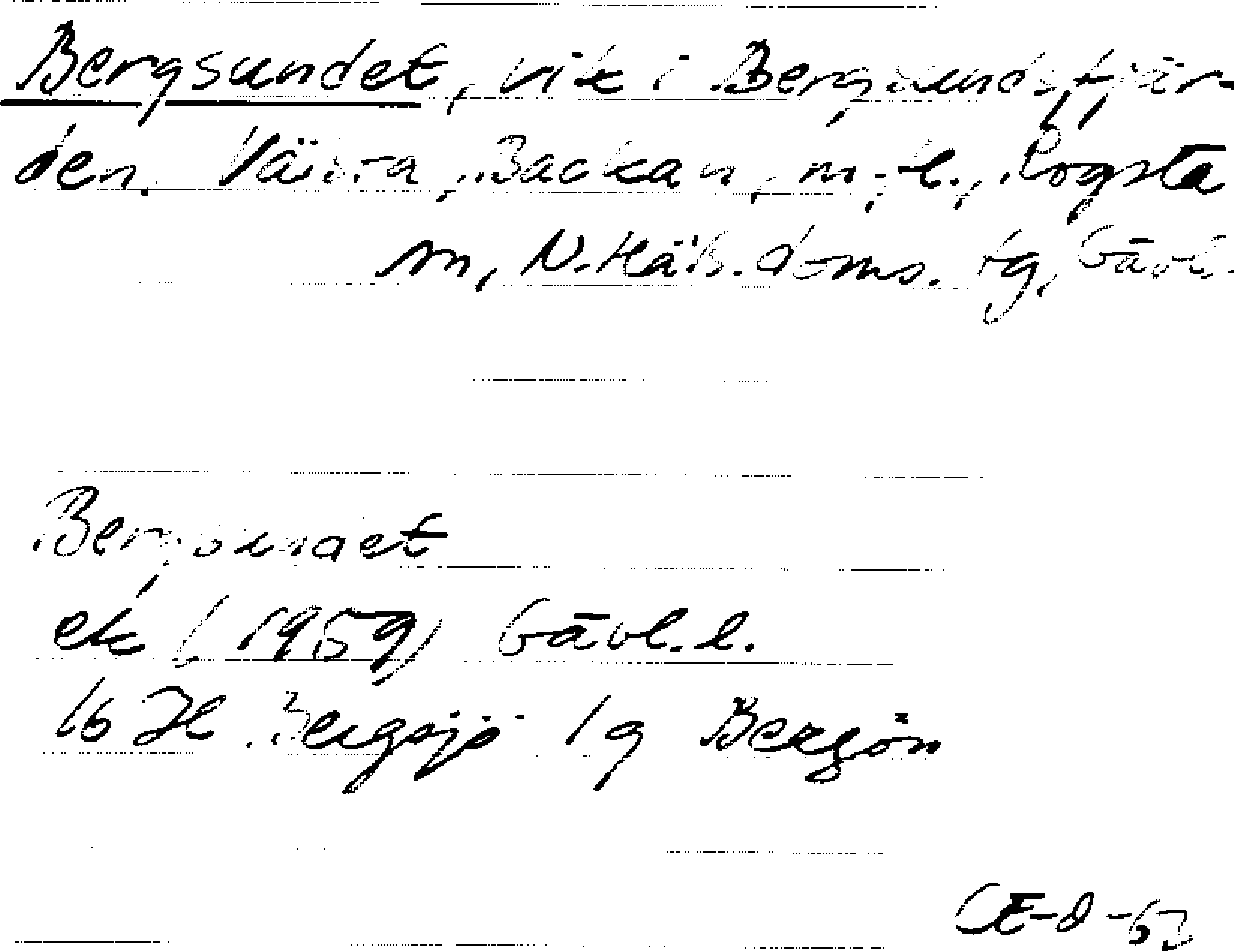 Bergsundet, vik i Bergsundsfjär-
den. Västra, Backan, m. fl., Rogsta
sn, N. Häls. doms. tg, Gävl.
Bergsundet
ek (1959) Gävl. l.
16 H Bergsjö 1g Bergön
CE-D-62